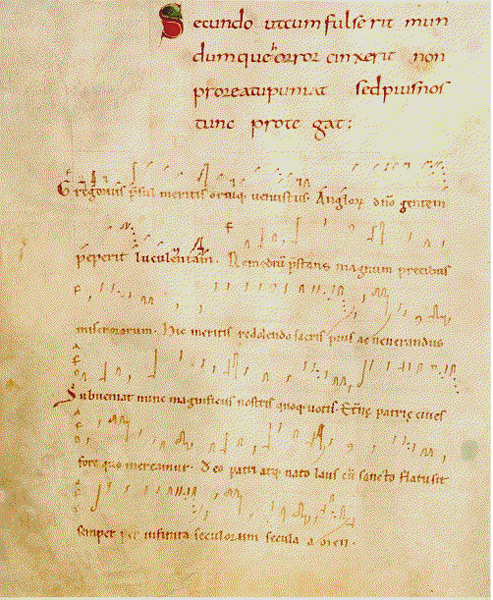 Secundo utcumfulserit mun
dumquehorror cinxerit non
proreatupuniat sedpiusnos
tunc prote gat:
Gregorius p̄sul meritis uenustus. Angloꝝ dño gentem
peperit luculentam. Remediū p̄stans magnum precibus
miserorum. Hic meritis redolendo sacris pius ac uenerandus
Subueniat nunc magnificus nostris quoq; uotis. patrię ciues
fore quo mereamur. Deo patri atq; nato laus cū sancto flatusit
semper per infinita seculorum secula amen.